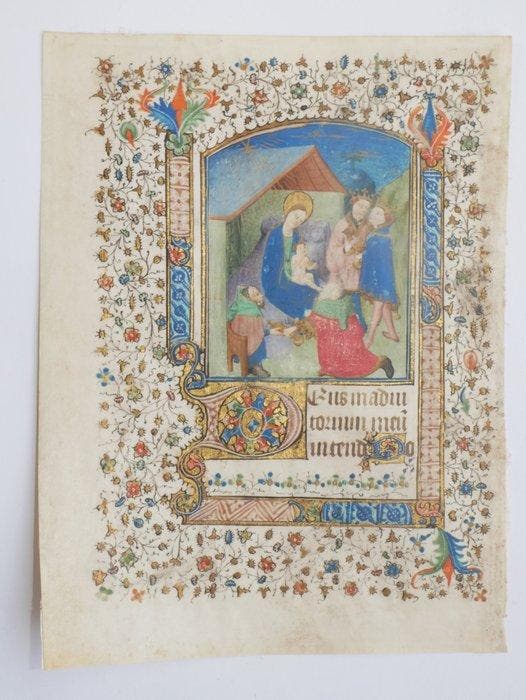 Deus in adiu
torium meū
intende Do